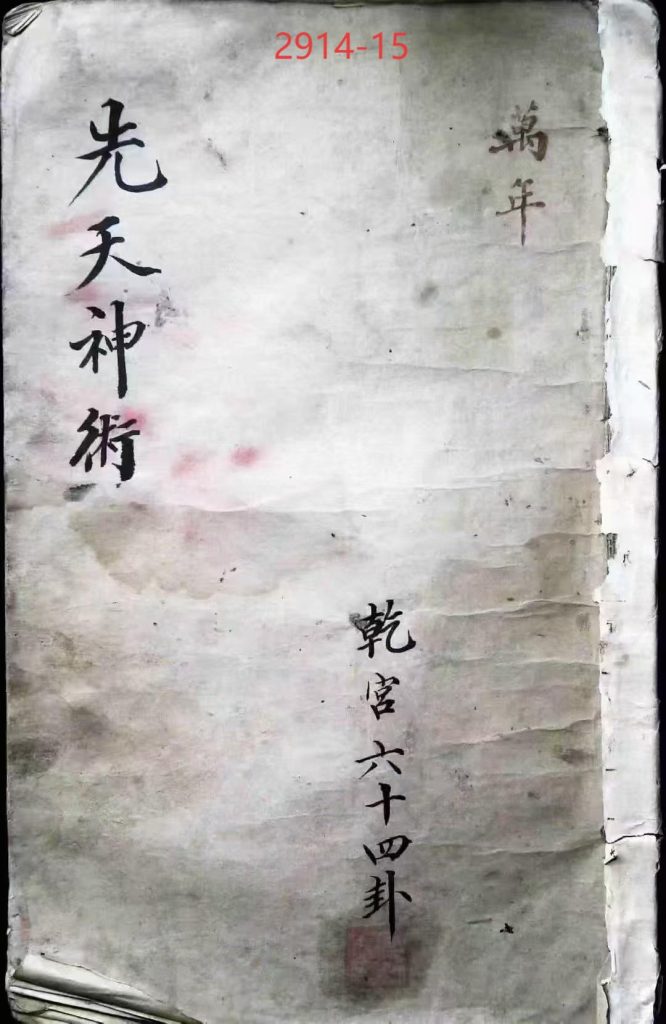 2914-15
萬年
乾宮六十四卦
先天神術